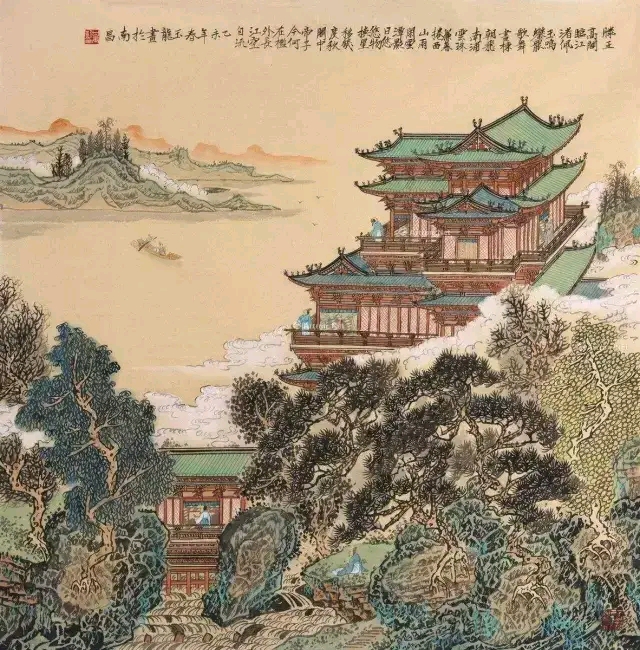 滕王
高閣
臨江
渚佩
玉鳴
鸞罷
歌舞
畫棟
朝飛
南浦
雲珠
簾暮
捲西
山雨
閒雲
潭影
日悠
悠物
換星
移幾
度秋
閣中
帝子
今何
在檻
外長
江空
自流
乙未年春玉龍畫於南昌